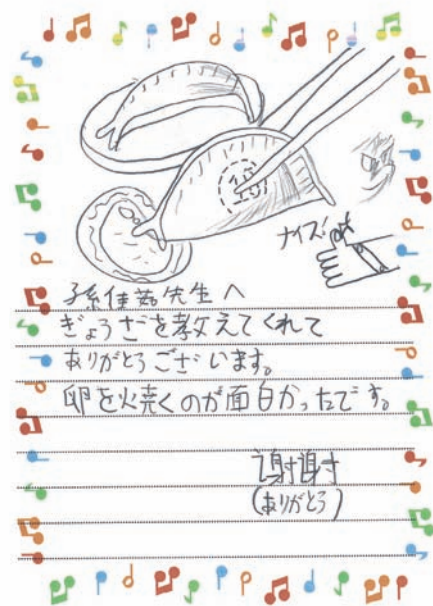 ナイス!
孫佳茹先生へ
ぎょうざを教えてくれて
ありがとうございます。
卵を火焼くのが面白かったです。
謝謝
(ありがとう)